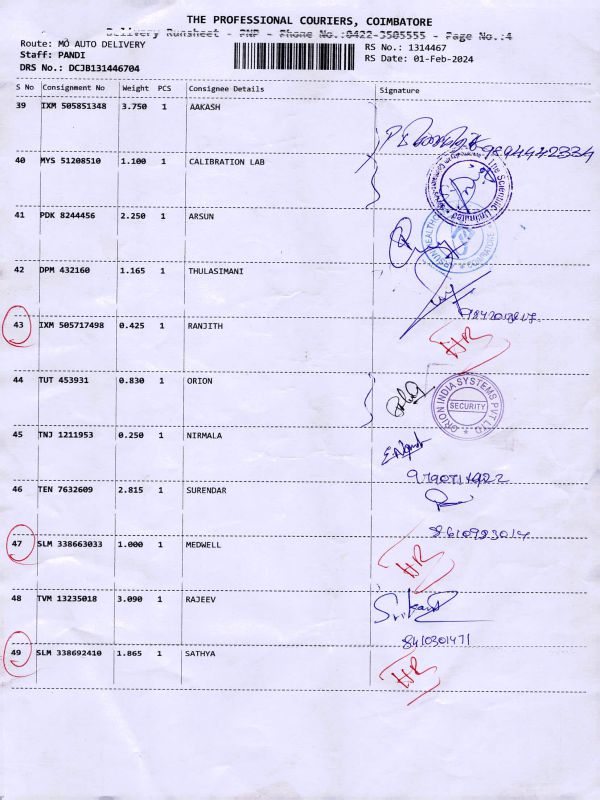 THE PROFESSIONAL COURIERS, COIMBATORE
Delivery Runsheet - PNP - Phone No.:0422-3505555 - Page No.:4
Route: MÒ AUTO DELIVERY
RS No.: 1314467
Staff: PANDI
RS Date: 01-Feb-2024
DRS No.: DCJB131446704
S No Consignment No Weight PCS Consignee Details Signature
39 IXM 505851348 3.750 1 AAKASH
9894442334
40 MYS 51208510 1.100 1 CALIBRATION LAB
The Scientific Unlimited
41 PDK 8244456 2.250 1 ARSUN
COIMBATORE
42 DPM 432160 1.165 1 THULASIMANI
43 IXM 505717498 0.425 1 RANJITH
HR
44 TUT 453931 0.830 1 ORION
ORION INDIA SYSTEMS PVT LTD.
SECURITY
45 TNJ 1211953 0.250 1 NIRMALA
46 TEN 7632609 2.815 1 SURENDAR
8610983014
47 SLM 338663033 1.000 1 MEDWELL
HR
48 TVM 13235018 3.090 1 RAJEEV
8410301471
49 SLM 338692410 1.865 1 SATHYA
HR